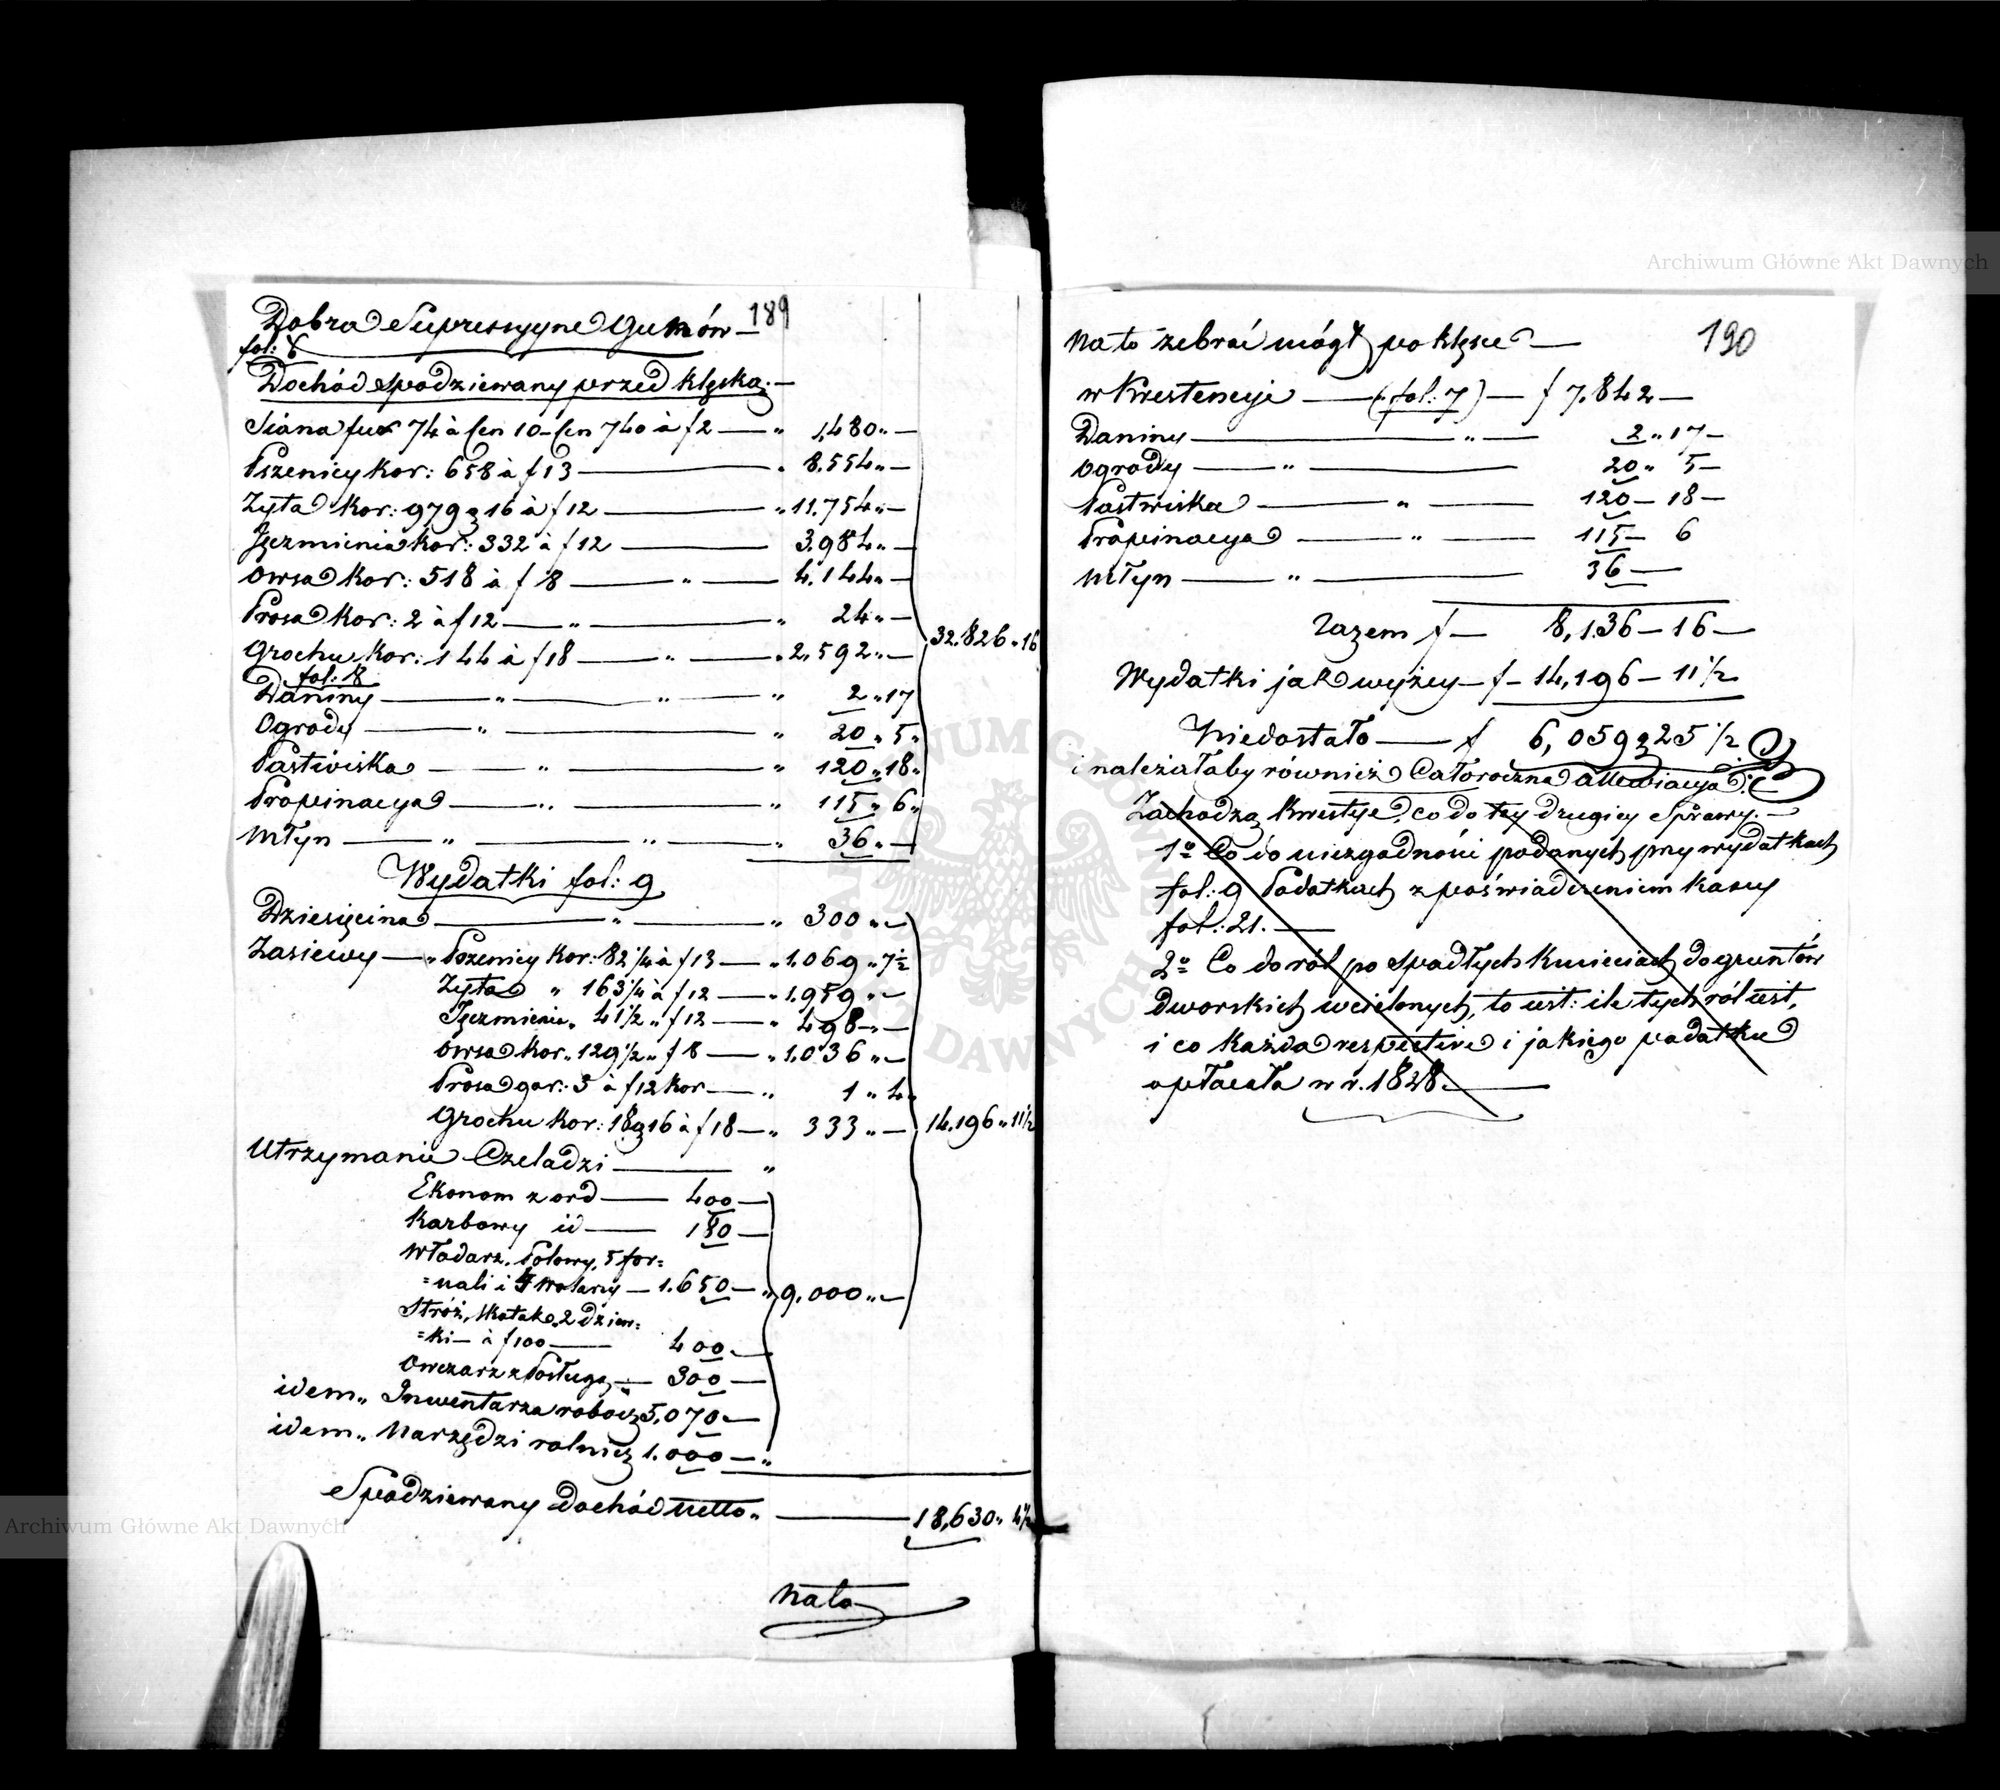 Dobra Supressyjne Gumów — 189
fol: 6
Dochód spodziewany przed klęską: —
Siana fur 74 à Cen 10 – Cen 740 à f 2 — „ 1,480 „ —
Pszenicy Kor: 658 à f 13 — „ 8.554 „ —
Żyta Kor: 979 g 16 à f 12 — „ 11.754 „ —
Jęczmienia Kor: 332 à f 12 — 3.984 „ —
Owsa Kor: 518 à f 8 — „ — 4.144 „ —
Prosa Kor: 2 à f 12 — „ — „ 24 „ —
Grochu Kor: 144 à f 18 — „ — „ 2,592 „ — 32.826 „ 16
fol: 8
Daniny — „ — „ — „ 2 „ 17
Ogrody — „ — „ 20 „ 5 „
Pastwiska — „ — „ 120 „ 18 „
Propinacya — „ — „ 115 „ 6 „
Młyn — „ — „ — „ 36 „ —
Wydatki fol: 9
Dziesięcina — „ — „ 300 „ —
Zasiewy — „ Pszenicy Kor: 82 1/4 à f 13 — „ 1.069 „ 7 1/2
Żyta „ 163 1/4 à f 12 — „ 1.959 „ —
Jęczmienia „ 41 1/2 „ f 12 — „ 498 „ —
Owsa Kor „ 129 1/2 „ f 8 — „ 1.036 „ —
Prosa gar: 3 à f 12 Kor — „ 1 „ 4 „
Grochu Kor: 18 g 16 à f 18 — „ 333 „ — 14.196 „ 11 1/2
Utrzymanie Czeladzi — „
Ekonom z ord — 400 —
Karbowy id — 180 —
Włodarz, Polowy, 5 for=
=nali i 4 Wolarzy — 1.650 — „ 9.000 „ —
Stróż, Skotak, 2 dziew=
=ki — à f 100 — 400 —
Owczarz z Posługą — 300 —
idem „ Inwentarza robocz 5,070 —
idem „ Narzędzi rolnicz 1.000 — „
Spodziewany dochód netto „ — 18,630 „ 4 1/2
Na to
190
Na to zebrać mógł po klęsce —
w Krestencyi — (: fol: 7) — f 7.842 —
Daniny — „ — 2 „ 17 —
Ogrody — „ — 20 „ 5 —
Pastwiska — „ — 120 — 18 —
Propinacya — „ — 115 — 6
Młyn — „ — 36 —
Razem f — 8,136 — 16 —
Wydatki jak wyżey — f — 14,196 — 11 1/2
Niedostało — f 6,059 g 25 1/2
i należałaby również Całoroczna allewiacya.
Zachodzą kwestye co do tey drugiey Sprawy. —
1º Co do niezgodności podanych przy wydatkach
fol: 9 Podatkach z poświadczeniem Kassy
fol: 21. —
2º Co do ról po spadłych Kmieciach do gruntów
dworskich wcielonych, to iest: ile tych ról iest,
i co każda respective i jakiego podatku
opłacała w r. 1828. —
Archiwum Główne Akt Dawnych
Archiwum Główne Akt Dawnych
ARCHIWUM GŁÓWNE AKT DAWNYCH